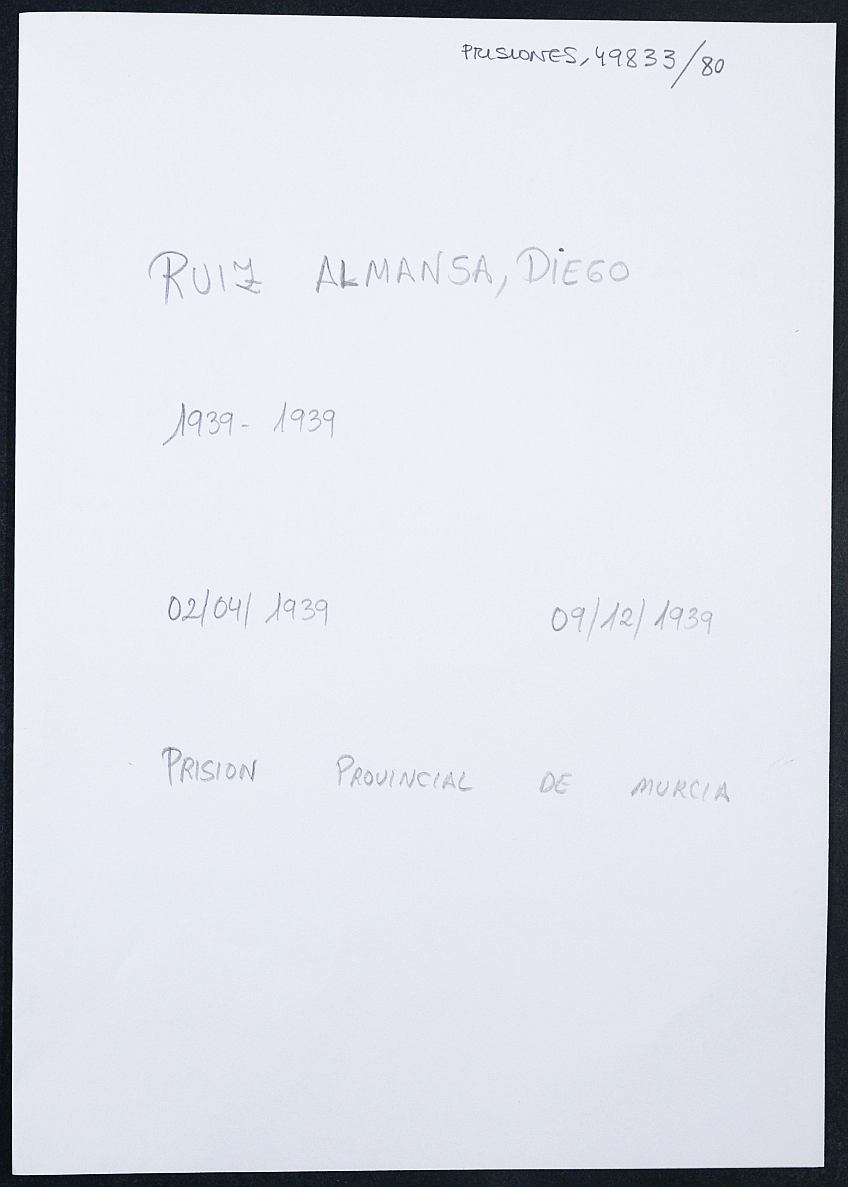 PRISIONES, 49833/80
RUIZ ALMANSA, DIEGO
1939- 1939
02/04/ 1939 09/12/1939
PRISION PROVINCIAL DE MURCIA